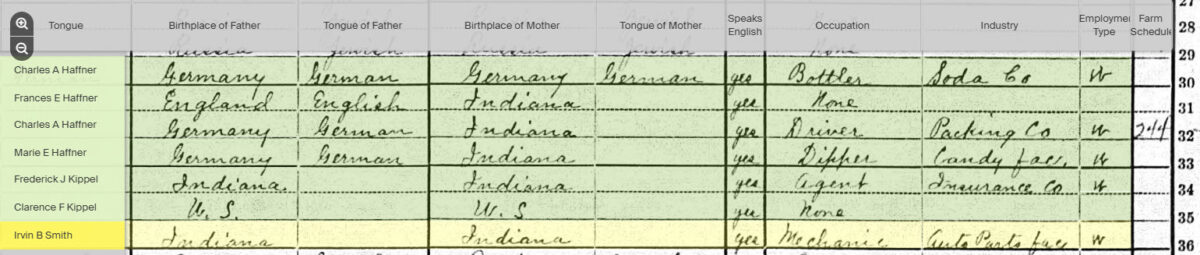 Tongue Birthplace of Father Tongue of Father Birthplace of Mother Tongue of Mother Speaks English Occupation Industry Employmer Type Farm Schedule
27
28
Russia Jewish Russia Jewish None
29
Charles A Haffner Germany German Germany German yes Bottler Soda Co W 30
Frances E Haffner England English Indiana yes None 31
Charles A Haffner Germany German Indiana yes Driver Packing Co W 244 32
Marie E Haffner Germany German Indiana yes Dipper Candy fac. W 33
Frederick J Kippel Indiana Indiana yes Agent Insurance Co W 34
Clarence F Kippel U. S. U. S yes None 35
Irvin B Smith Indiana Indiana yes Mechanic Auto Parts fac W 36